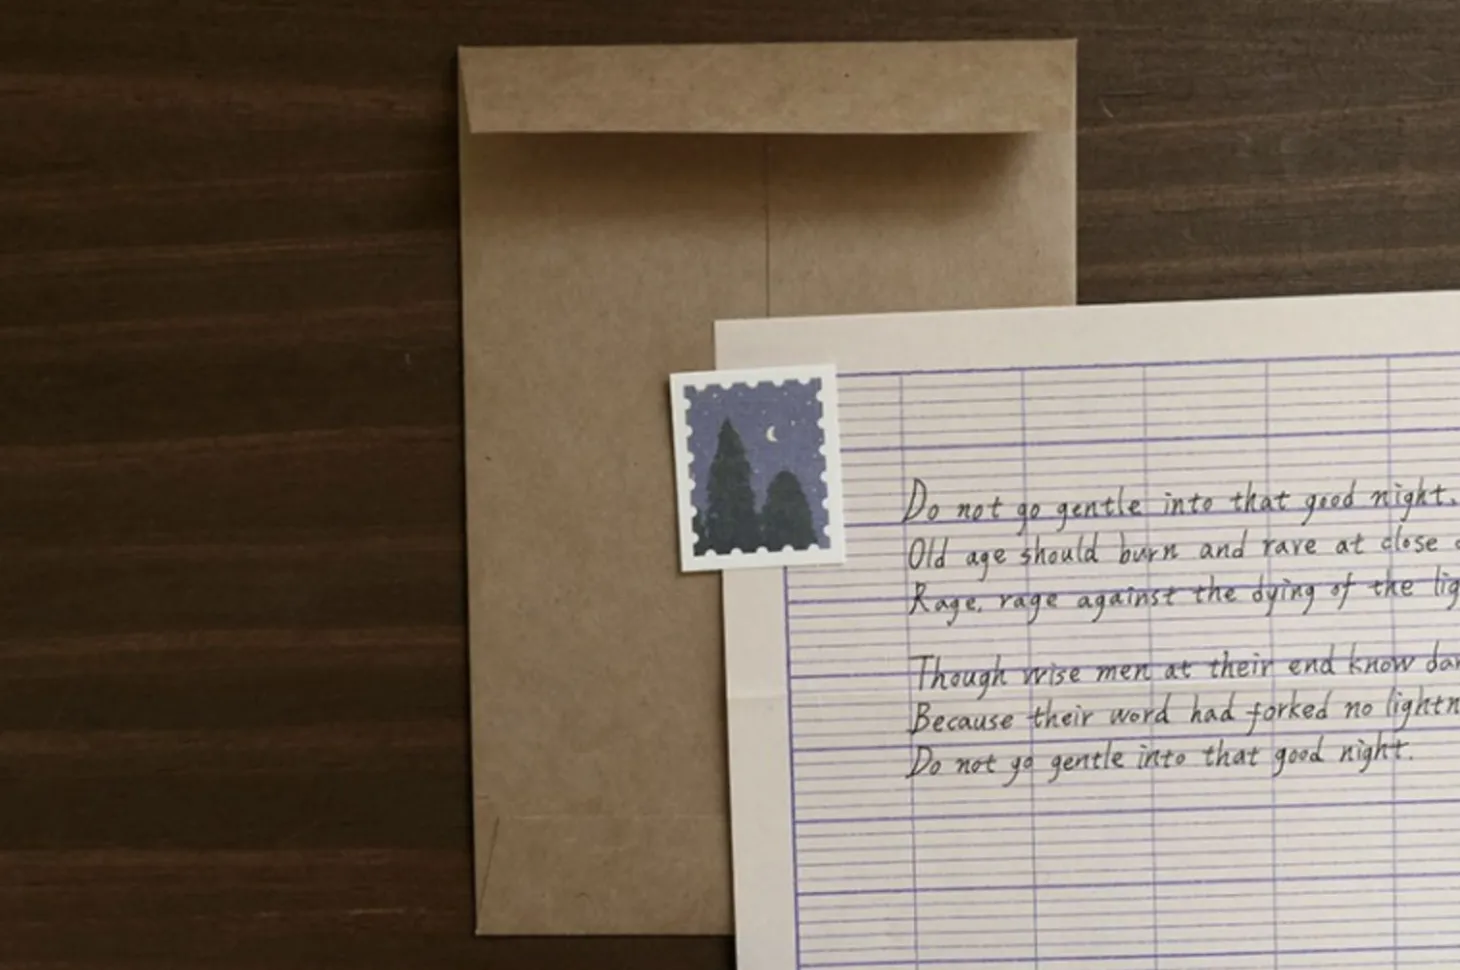 Do not go gentle into that good night.
Old age should burn and rave at close
Rage, rage against the dying of the
Though wise men at their end know
Because their word had forked no
Do not go gentle into that good night.